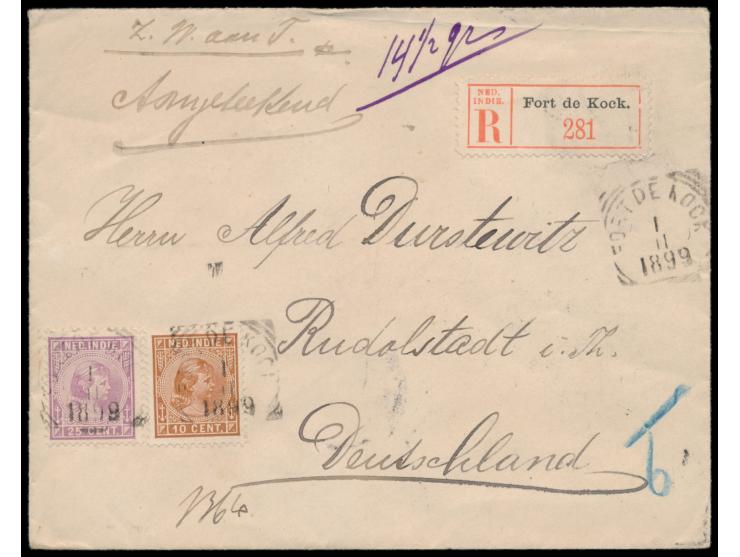 Z. W. aan T.
14 1/2 gr
Aangeteekend
NED.
INDIE.
R
Fort de Kock.
281
FORT DE KOCK
1
11
1899
Herrn Alfred Durstewitz
Rudolstadt i. Th.
Deutschland
NED. INDIE
25 CENT.
NED. INDIE
10 CENT.
FORT DE KOCK
1
11
1899
1
11
1899